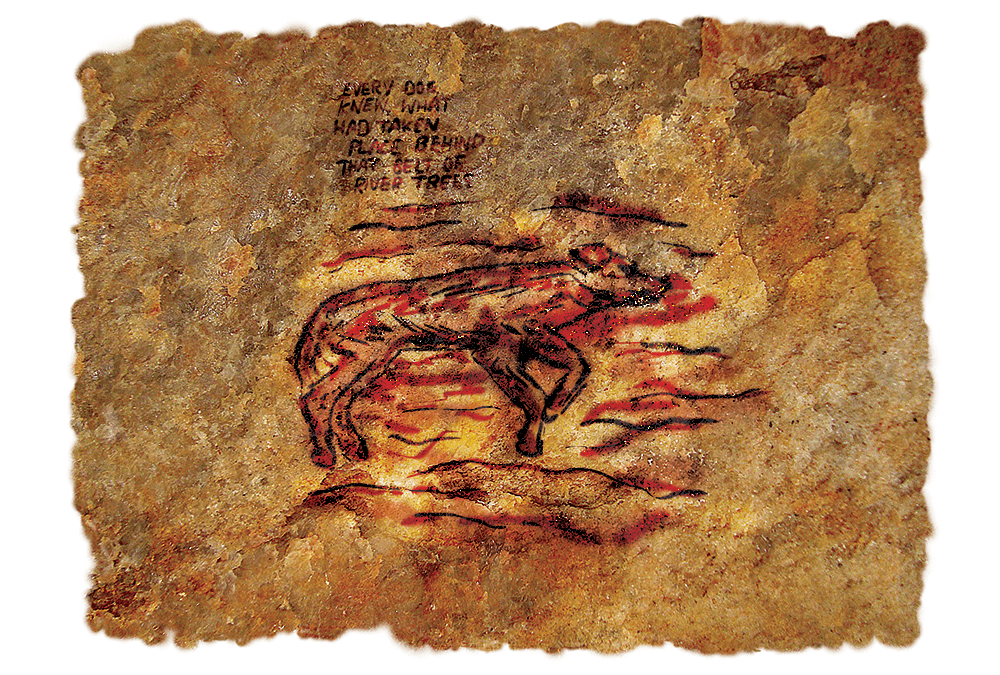 EVERY DOG
KNEW WHAT
HAD TAKEN
PLACE BEHIND
THAT BELT OF
RIVER TREES